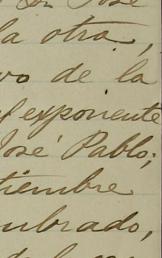 José
la otra,
vo de la
exponente
José Pablo;
tiembre
mbrado,